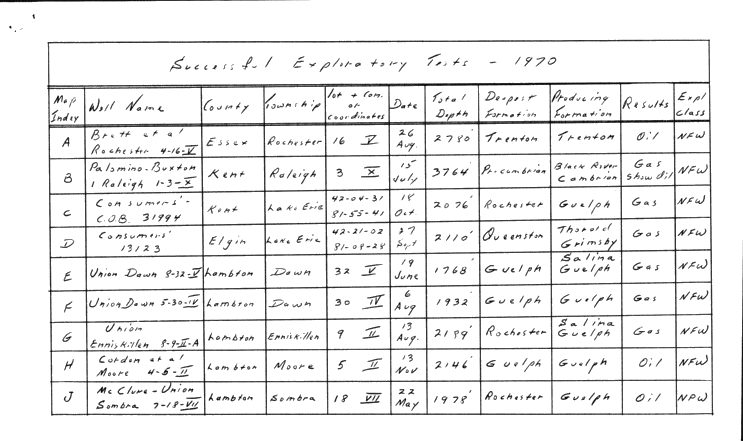 Successful Exploratory Tests - 1970
Map Index Well Name County Township lot + Con. or coordinates Date Total Depth Deepest Formation Producing Formation Results Expl Class
A Brett et al Rochester 4-16-V Essex Rochester 16 V 26 Aug. 2780' Trenton Trenton Oil NFW
B Palomino-Buxton 1 Raleigh 1-3-X Kent Raleigh 3 X 15 July 3764' Pr-cambrian Black River Cambrian Gas Show Oil NFW
C Consumers'- C.O.B. 31994 Kent Lake Erie 42-04-31 81-55-41 18 Oct 2076' Rochester Guelph Gas NFW
D Consumers' 13123 Elgin Lake Erie 42-21-02 81-09-28 27 Sept 2110' Queenston Thorold Grimsby Gas NFW
E Union Dawn 8-32-V Lambton Dawn 32 V 19 June 1768' Guelph Salina Guelph Gas NFW
F Union Dawn 5-30-IV Lambton Dawn 30 IV 6 Aug 1932' Guelph Guelph Gas NFW
G Union Enniskillen 8-9-II-A Lambton Enniskillen 9 II 13 Aug. 2199' Rochester Salina Guelph Gas NFW
H Cordon et al Moore 4-5-II Lambton Moore 5 II 13 Nov 2146' Guelph Guelph Oil NFW
J McClure-Union Sombra 7-18-VII Lambton Sombra 18 VII 22 May 1978' Rochester Guelph Oil NPW